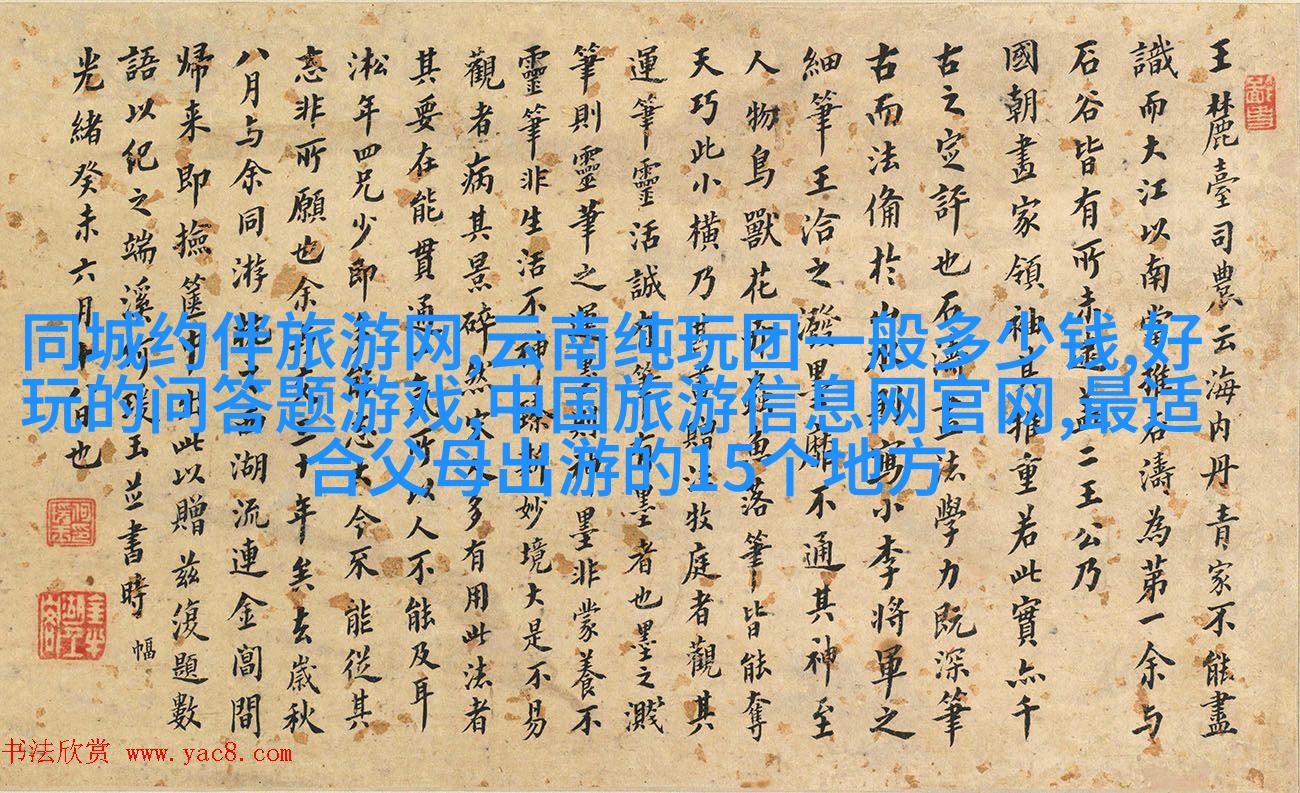 王麓臺司農云海内丹青家不能盡
識而大江以南當推石濤為第一余与
石谷皆有所未逮蓋二王公乃
國朝畫家領袖其推重若此實亦千
古之定評也石濤學力既深筆
古而法備於寫小李將軍之
細筆王洽之潑墨靡不通其神至
人物鳥獸花魚落筆皆能奪
天巧此小橫乃其贈江牧庭者觀其
運筆靈活誠有筆有墨者也墨之濺
筆則靈筆之運墨則神墨非蒙養不
靈筆非生活不神妙境大是不易
觀者病其景碎然宋多有用此法者
其要在能貫通所以人不能及耳
淞年四兄少即今不能從其
志非所願也余二十年矣去歲秋
八月与余同游湖流連金閶間
歸来即撿篋中出此以贈茲復題數
語以紀之端溪何瑗玉並書時
光緒癸未六月十日也
幅
同城约伴旅游网,云南纯玩团一般多少钱,好
玩的问答题游戏,中国旅游信息网官网,最适
合父母出游的15个地方
书法欣赏 www.yac8.com